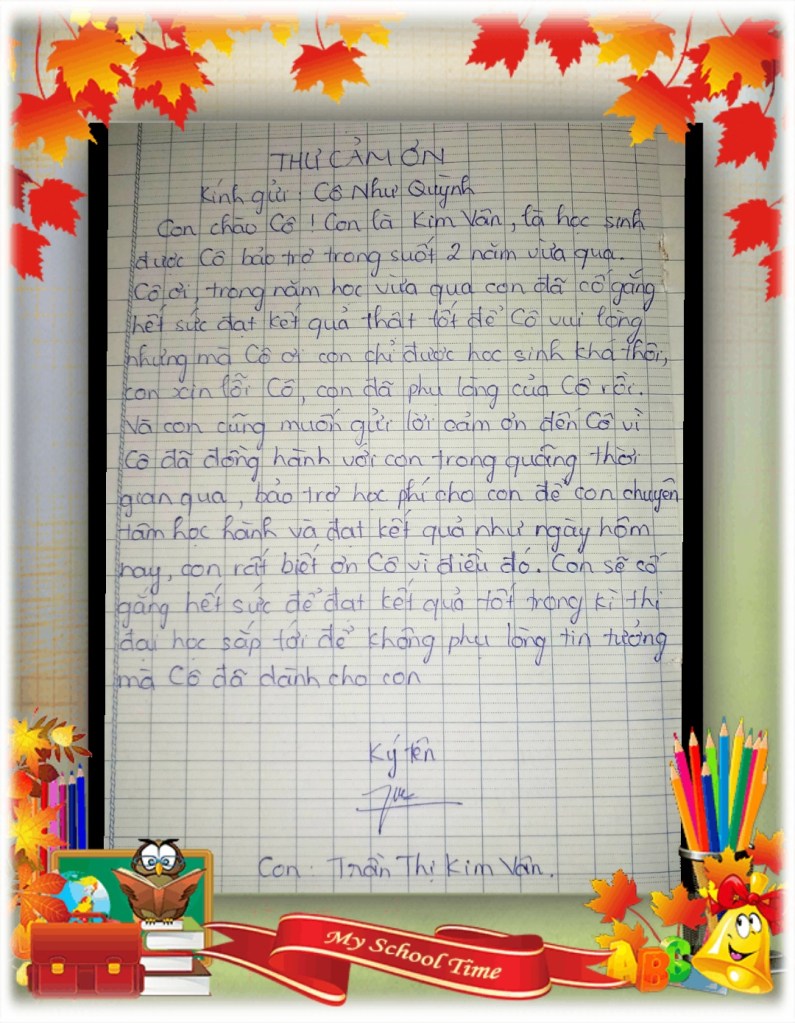 THƯ CẢM ƠN
Kính gửi : Cô Như Quỳnh
Con chào Cô ! Con là Kim Vân, là học sinh
được Cô bảo trợ trong suốt 2 năm vừa qua.
Cô ơi, trong năm học vừa qua con đã cố gắng
hết sức đạt kết quả thật tốt để Cô vui lòng
nhưng mà Cô ơi con chỉ được học sinh khá thôi,
con xin lỗi Cô, con đã phụ lòng của Cô rồi.
Và con cũng muốn gửi lời cảm ơn đến Cô vì
Cô đã đồng hành với con trong quãng thời
gian qua, bảo trợ học phí cho con để con chuyên
tâm học hành và đạt kết quả như ngày hôm
nay, con rất biết ơn Cô vì điều đó. Con sẽ cố
gắng hết sức để đạt kết quả tốt trong kì thi
đại học sắp tới để không phụ lòng tin tưởng
mà Cô đã dành cho con
Ký tên
Con : Trần Thị Kim Vân.
My School Time
ABC